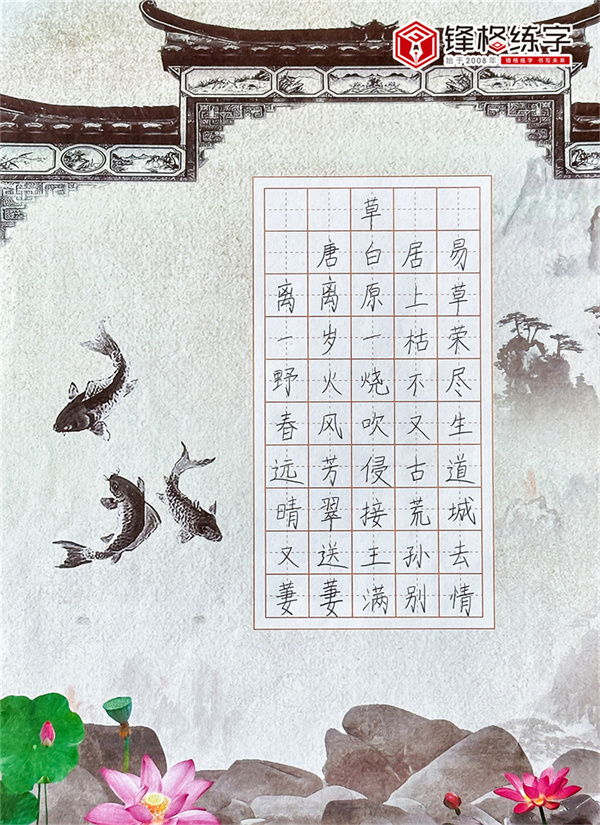 锋格练字
始于2008年 锋格练字 书写未来
草
唐白居易
离离原上草
一岁一枯荣
野火烧不尽
春风吹又生
远芳侵古道
晴翠接荒城
又送王孙去
萋萋满别情